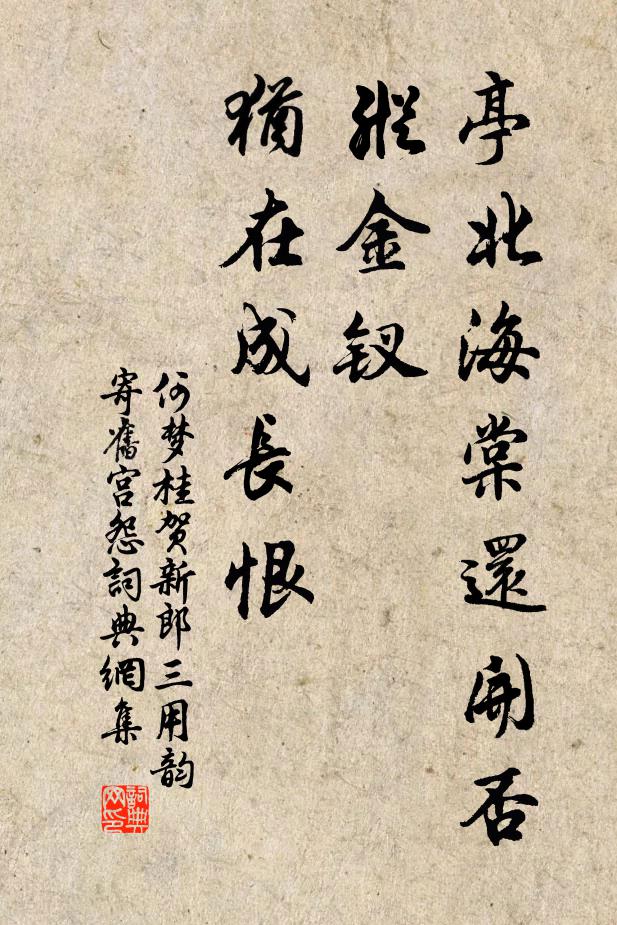 亭北海棠還開否
縱金钗
猶在成長恨
何梦桂贺新郎三用韵
寄舊宫怨詞典網集
詞典
网印